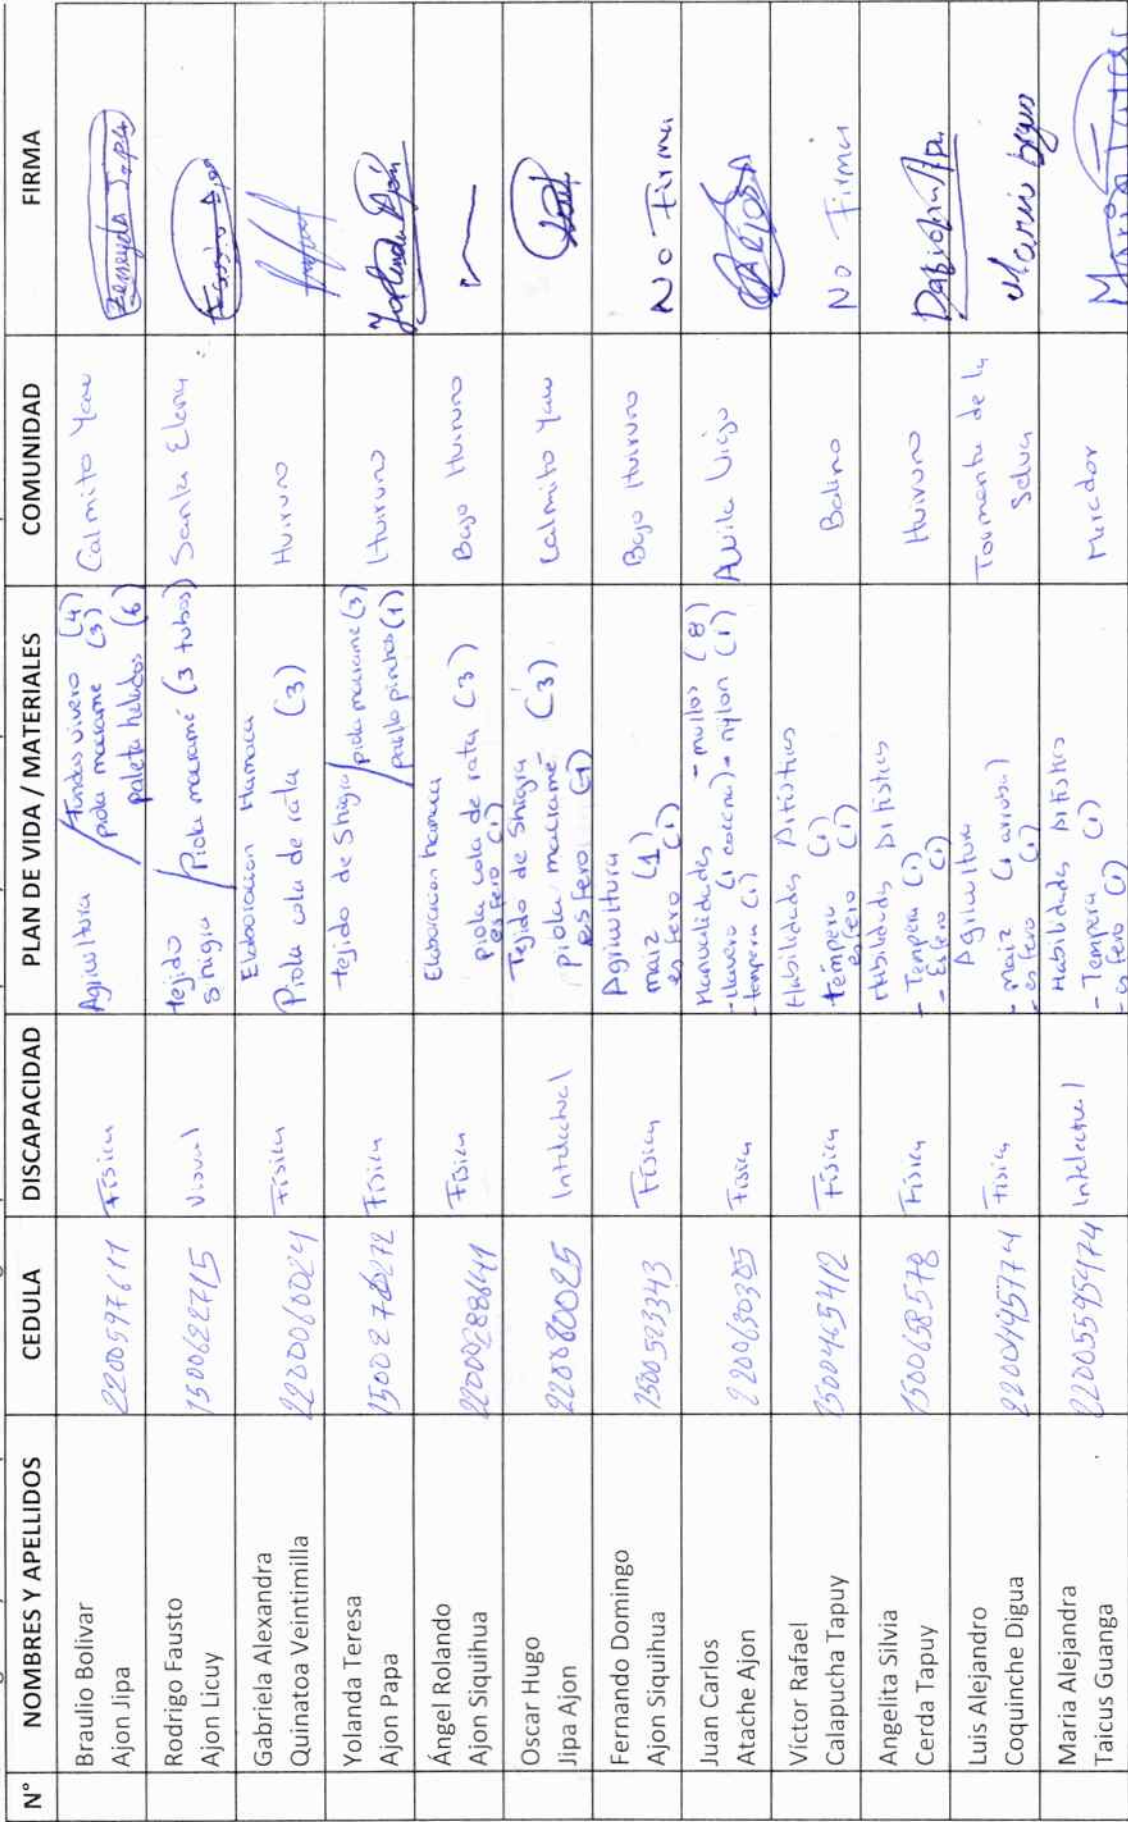 N° NOMBRES Y APELLIDOS CEDULA DISCAPACIDAD PLAN DE VIDA / MATERIALES COMUNIDAD FIRMA
Braulio Bolivar
Ajon Jipa
2200597611 Física
Agricultura / fundas vivero (4)
piola macrame (3)
paleta helados (6)
Calmito Yacu
Rodrigo Fausto
Ajon Licuy
1500622715 Visual
tejido
shigra / Piola macramé (3 tubos)
Santa Elena
Gabriela Alexandra
Quinatoa Veintimilla
2200060024 Física
Elaboracion Hamaca
Piola cola de rata (3)
Huiruno
Yolanda Teresa
Ajon Papa
Física
tejido de Shigra / piola macrame (3)
/ (1)
Huiruno
Yolanda Ajón
Ángel Rolando
Ajon Siquihua
2200288641 Física
Elaboracion hamaca
piola cola de rata (3)
esfero (1)
Bajo Huiruno
Oscar Hugo
Jipa Ajon
2200080025 Intelectual
Tejido de Shigra
piola macramé (3)
esfero (1)
Calmito Yacu
Fernando Domingo
Ajon Siquihua
1500523343 Física
Agricultura
maiz (1)
esfero (1)
Bajo Huiruno
No Firma
Juan Carlos
Atache Ajon
2200630305 Física
Manualidades - mullos (8)
- llavero - nylon (1)
- tempera (1)
Avila Viejo
Victor Rafael
Calapucha Tapuy
1500465412 Física
Habilidades Artisticas
témpera (1)
esfero (1)
Balino
No Firma
Angelita Silvia
Cerda Tapuy
1500658578 Física
Habilidades Artisticas
- Tempera (1)
- Esfero (1)
Huiruno
Luis Alejandro
Coquinche Digua
2200145774 Física
Agricultura
- maiz (1 arroba)
- esfero (1)
Tormenta de la
Selva
Maria Alejandra
Taicus Guanga
Intelectual
Habilidades Artistics
- Tempera (1)
- esfero (1)
Mirador